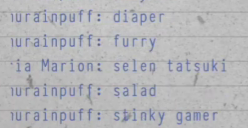 urainpuff: diaper
urainpuff: furry
ia Marion: selen tatsuki
urainpuff: salad
urainpuff: stinky gamer